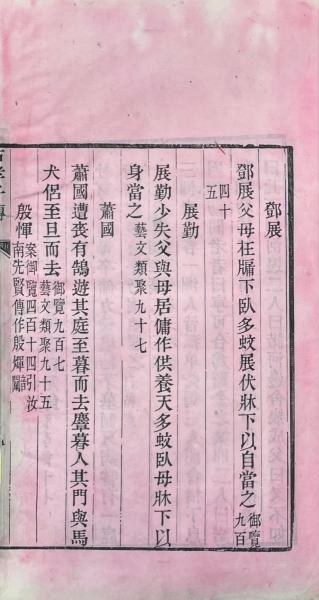 鄧展
鄧展父母在牖下臥多蚊展伏牀下以自當之御覽九百
四十五
展勤
展勤少失父與母居傭作供養天多蚊臥母牀下以
身當之藝文類聚九十七
蕭國
蕭國遭喪有鵠遊其庭至暮而去麞暮入其門與馬
犬侶至旦而去御覽九百七藝文類聚九十五
殷惲案御覽四百十四引汝南先賢傳作殷煇